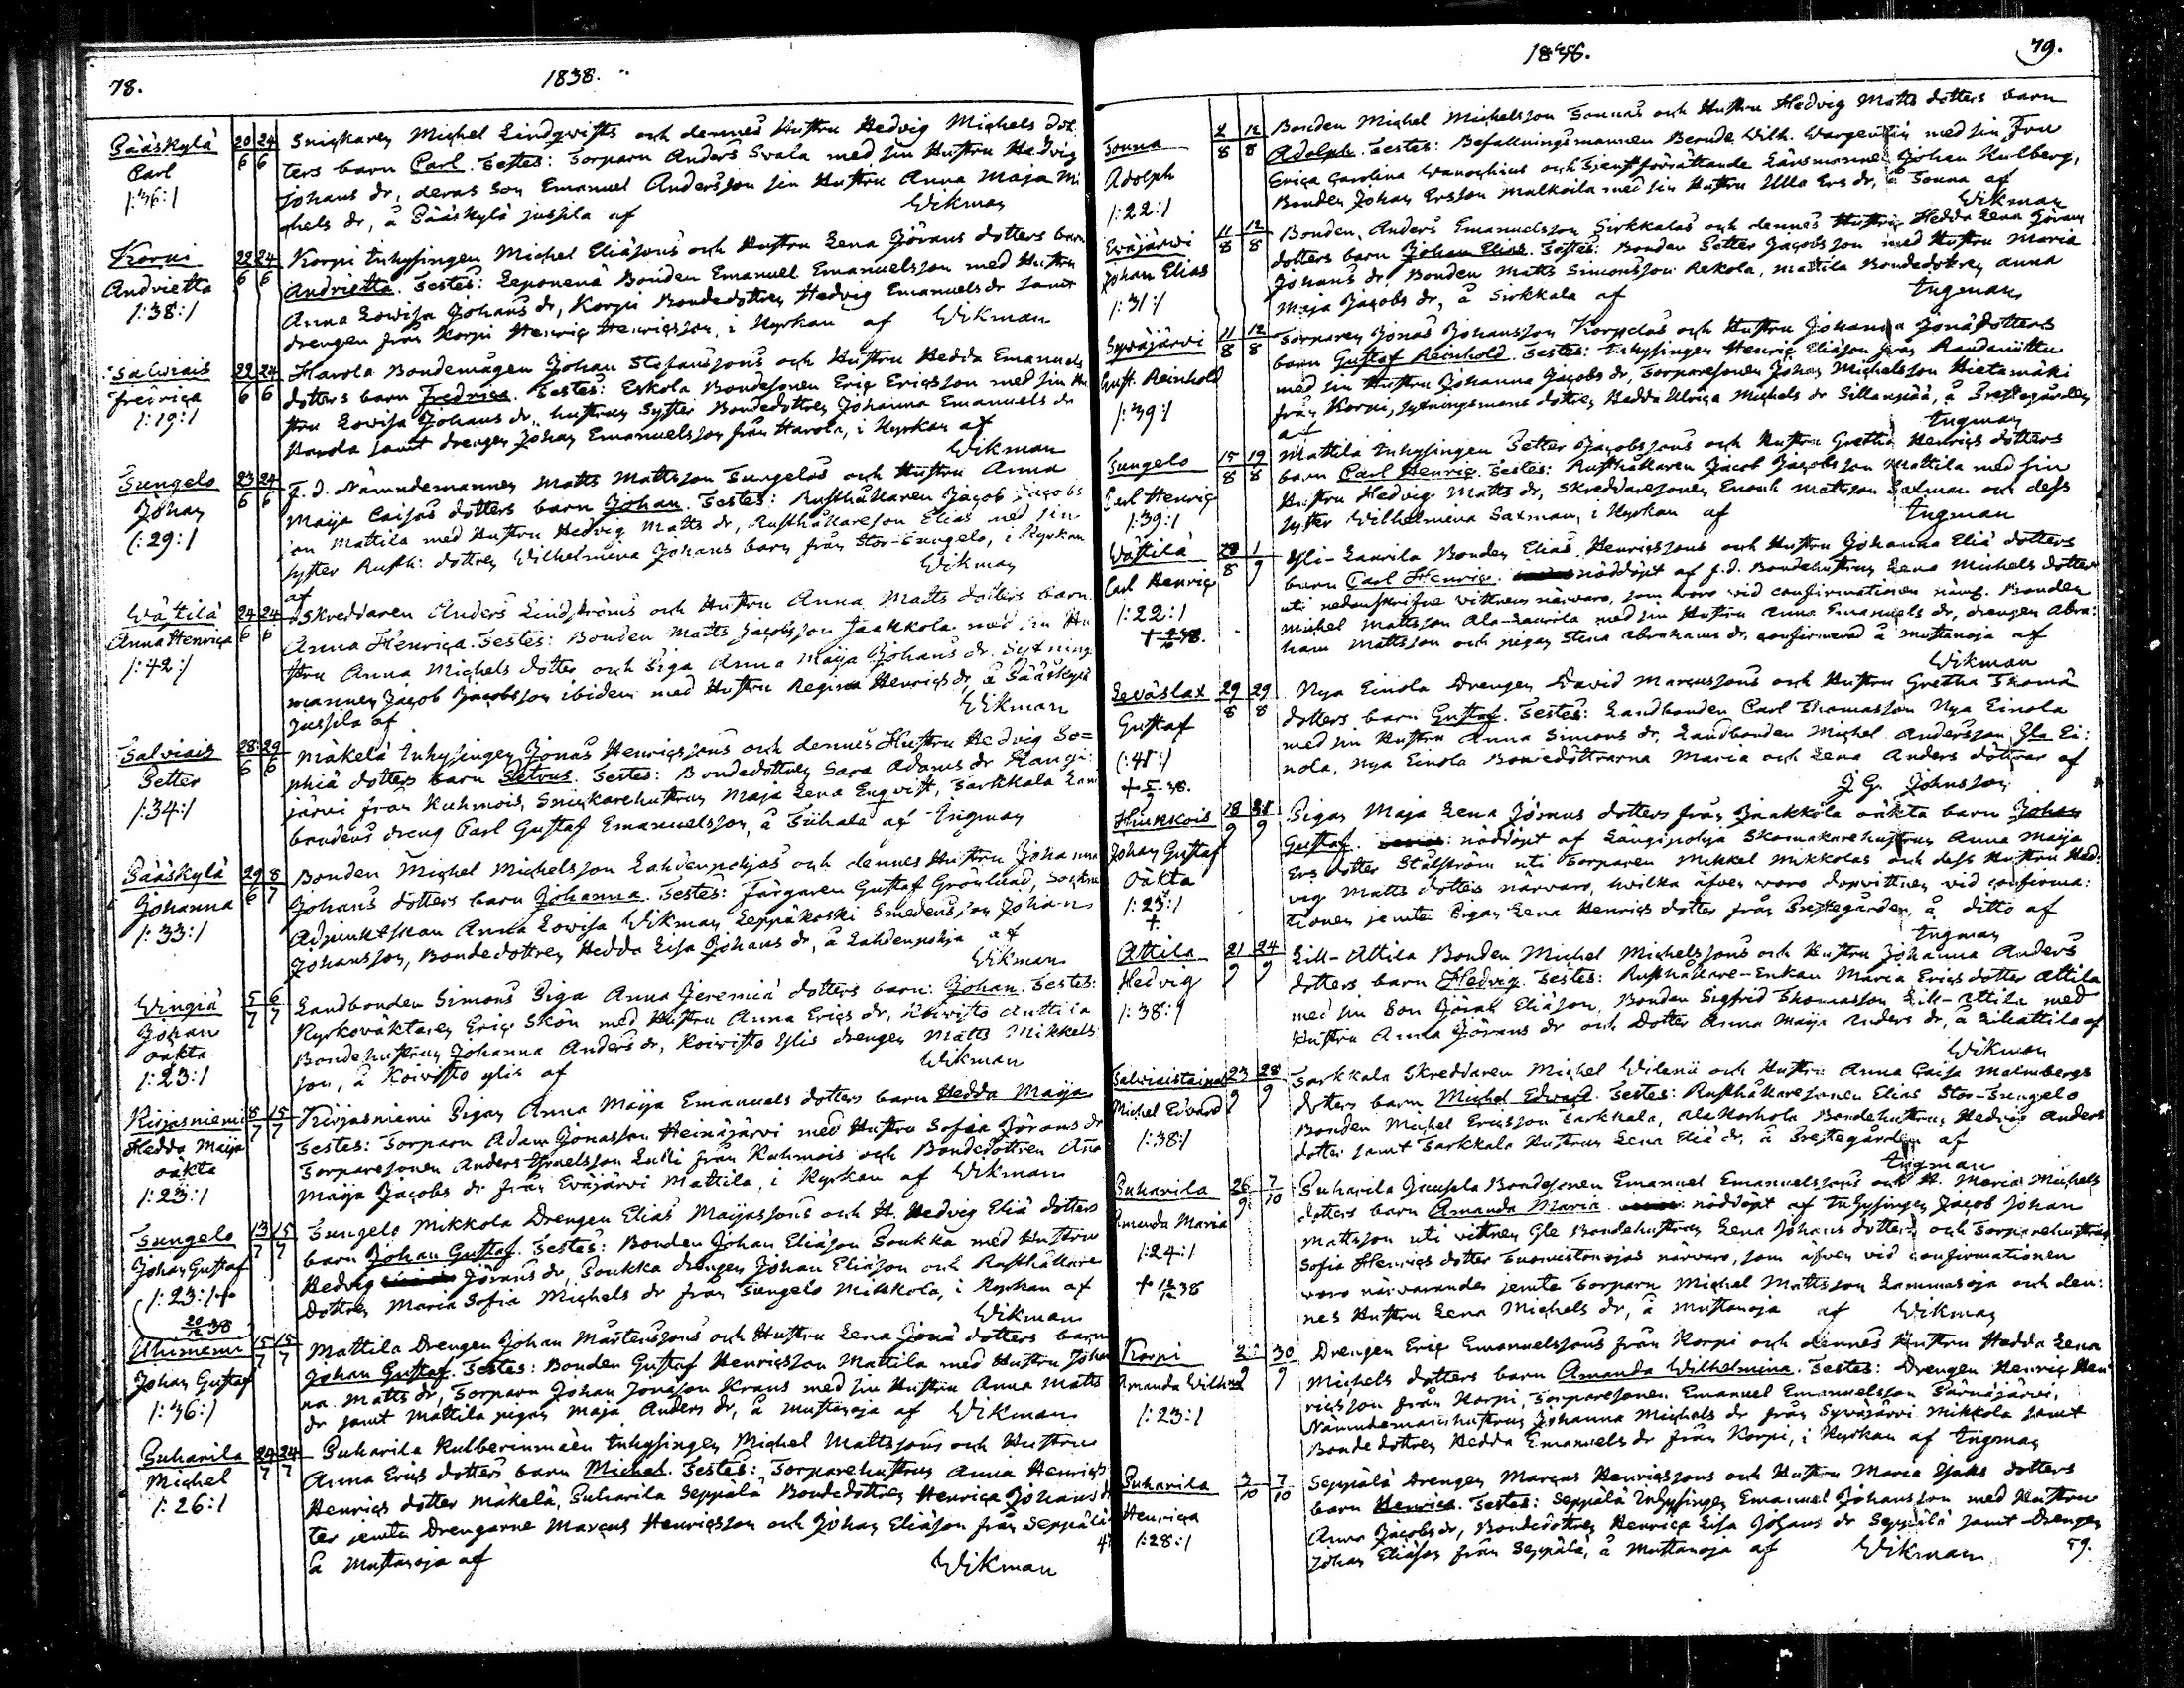 78.
1838.
Pääskylä 20/6 24/6 Snickaren Michel Lindqvists och dennes Hustru Hedvig Michels dot
Carl ters barn Carl. Testes: Torparn Anders Svala med sin Hustru Hedvig
1:36:1 Johans dr, deras Son Emanuel Andersson sin Hustru Anna Maja Mi
chels dr, å Pääskylä jussila af Wikman
Korpi 22/6 24/6 Korpi Inhysingen Michel Eliæsons och Hustru Lena Görans dotters barn
Andrietta Andrietta. Testes: Leponena Bonden Emanuel Emanuelsson med Hustru
1:38:1 Anna Lowisa Johans dr, Korpi Bondedottren Hedvig Emanuels dr samt
drengen från Korpi Henric Henricsson, i Kyrkan af Wikman
Salwiais 22/6 24/6 Harola Bondemågen Johan Stefanssons och Hustru Hedda Emanuels
Fredrica dotters barn Fredrica. Testes: Eskola Bondesonen Eric Ericsson med sin Hu
1:19:1 stru Lowisa Johans dr, hustruns Syster Bondedottren Johanna Emanuels dr
Harola samt drengen Johan Emanuelsson från Harola, i Kyrkan af
Wikman
Sungelo 23/6 24/6 F. d. Nämndemannen Matts Mattsson Sungelos och Hustru Anna
Johan Maija Caisas dotters barn Johan. Testes: Rusthållaren Jacob Jacobs
1:29:1 son Mattila med Hustru Hedvig Matts dr, Rusthållareson Elias med sin
syster Rusth: dottren Wilhelmina Johans barn från Stor-Sungelo, i Kyrkan
af Wikman
Wätilä 24/6 24/6 Skreddaren Anders Lindströms och Hustru Anna Matts dotters barn
Anna Henrica Anna Henrica. Testes: Bonden Matts Jacobsson Jaakkola med sin Hu
1:42:1 stru Anna Michels dotter och Piga Anna Maija Johans dr, Sytning
mannen Jacob Jacobsson ibidem med Hustru Regina Henrics dr, å Pääskylä
Jussila af Wikman
Salviais 28/6 29/6 Mäkelä Inhysingen Jonas Henricssons och dennes Hustru Hedvig So=
Petter phiæ dotters barn Petrus. Testes: Bondedottren Sara Adams dr Kangi
1:34:1 järvi från Kuhmois, Snickarehustrun Maja Lena Enqvist, Sarkkala Land
bondens dreng Carl Gustaf Emanuelsson, å Tiihala af Ingman
Pääskylä 29/6 8/7 Bonden Michel Michelsson Lahdenpohjas och dennes Hustru Johanna
Johanna Johans dotters barn Johanna. Testes: Färgaren Gustaf Grönlund, Sockne
1:33:1 Adjunktskan Anna Lowisa Wikman, Leppäkoski Smedens son Johan
Johansson, Bondedottren Hedda Lisa Johans dr, å Lahdenpohja af
Wikman
Wingiä 5/7 6/7 Landbonden Simons Piga Anna Jeremiæ dotters barn: Johan. Testes:
Johan Kyrkoväktaren Eric Skön med Hustru Anna Erics dr, Anttila
oäkta Bondehustrun Johanna Anders dr, Koivisto Ylis drengen Matts Mikkels
1:23:1 son, å Koivisto ylis af Wikman
Kirjasniemi 8/7 15/7 Kirjasniemi Pigan Anna Maija Emanuels dotters barn Hedda Maija
Hedda Maija Testes: Torparn Adam Jonasson Heinäjärvi med Hustru Sofia Görans dr
oäkta Torparesonen Anders Israelsson Lulli från Kuhmois och Bondedottren Anna
1:23:1 Maija Jacobs dr från Eväjärvi Mattila, i Kyrkan af Wikman
Sungelo 13/7 15/7 Sungelo Mikkola Drengen Elias Maijassons och H. Hedvig Eliæ dotters
Johan Gustaf barn Johan Gustaf. Testes: Bonden Johan Eliæson Poukka med Hustru
1:23:1 + Hedvig Görans dr, Poukka drengen Johan Eliæson och Rusthållare
20/12 38 dottren Maria Sofia Michels dr från Sungelo Mikkola, i Kyrkan af
Wikman
Uhiniemi 15/7 15/7 Mattila Drengen Johan Mårtenssons och Hustru Lena Jonæ dotters barn
Johan Gustaf Johan Gustaf. Testes: Bonden Gustaf Henricsson Mattila med Hustru Johan
1:36:1 na Matts dr, Torparn Johan Jonasson Kraus med sin Hustru Anna Matts
dr samt Mattila pigan Maja Anders dr, å Mustanoja af Wikman
Puharila 24/7 24/7 Puharila Kulberinmäen Inhysingen Michel Mattssons och Hustru
Michel Anna Erics dotters barn Michel. Testes: Torparehustrun Anna Henrics
1:26:1 Henrics dotter Mäkelä, Puharila Seppälä Bondedottren Henrica Johans dr
ter jemte Drengarne Marcus Henricsson och Johan Eliæson från Seppälä
å Mustanoja af Wikman
1838.
79.
Touna 2/8 12/8 Bonden Michel Michelsson Tounas och Hustru Hedvig Matts dotters barn
Adolph Adolph. Testes: Befallningsmannen Bernde Wilh. Wargentin med sin Fru
1:22:1 Erica Carolina Wanochius och Tjenstförrättande Länsmannen Johan Kulberg,
Bonden Johan Ersson Mulkoila med sin Hustru Ulla Ers dr, å Touna af
Wikman
Eväjärvi 11/8 12/8 Bonden Anders Emanuelsson Sirkkalas och dennes Hustru Hedda Lena Görans
Johan Elias dotters barn Johan Elias. Testes: Bonden Petter Jacobsson med Hustru Maria
1:31:1 Johans dr, Bonden Matts Simonsson Rekola, Mattila Bondedottren Anna
Maja Jacobs dr, å Sirkkala af Ingman
Syväjärvi 11/8 12/8 Torparen Jonas Johansson Korpelas och Hustru Johanna Jonædotters
Gust. Reinhold barn Gustaf Reinhold. Testes: Inhysingen Henric Eliæson från Raudaniittu
1:39:1 med sin Hustru Johanna Jacobs dr, Torparesonen Johan Michelsson Hietamäki
från Korpi, Sytningsmans dottren Hedda Ulrica Michels dr Sillanpää, å Prestegården
af Ingman
Sungelo 15/8 19/8 Mattila Inhysingen Petter Jacobssons och Hustru Gretha Henrics dotters
Carl Henric barn Carl Henric. Testes: Rusthållaren Jacob Jacobsson Mattila med sin
1:39:1 Hustru Hedvig Matts dr, Skreddaresonen Enoch Mattsson Saxman och dess
syster Wilhelmina Saxman, i Kyrkan af Ingman
Wästilä 28/8 1/9 Yli-Laurila Bonden Elias Henricssons och Hustru Johanna Eliæ dotters
Carl Henric barn Carl Henric. nöddöpt af f.d. Bondehustrun Lena Michels dotter
1:22:1 uti nedanskrifne vittnens närvaro, som woro vid confirmationen näml. Bonden
Michel Mattsson Ala-Laurila med sin Hustru Anna Emanuels dr, drengen Abra:
ham Mattsson och pigan Stina Abrahams dr, confirmerad å Mustanoja af
Wikman
Leväslax 29/8 29/8 Nya Einola Drengen David Marcussons och Hustru Gretha Thomæ
Gustaf dotters barn Gustaf. Testes: Landbonden Carl Thomasson Nya Einola
1:41:1 med sin Hustru Anna Simons dr, Landbonden Michel Andersson Gle Ei:
nola, Nya Einola Bondedöttrarna Maria och Lena Anders döttrar af
J. G. Johnsson
Hinkkois 18/9 /9 Pigan Maja Lena Jöranus dotters från Jaakkola oäkta barn Johan
Johan Gustaf Gustaf. nöddöpt af Längipohja Skomakarehustrun Anna Maija
Oäkta Ers dotter Stålström uti Torparen Mikkel Mikkolas och dess Hustru Hed:
1:23:1 vig Matts dotters närvaro, hvilka äfven woro dopvittnen vid confirma:
+ tionen jemte Pigan Lena Henrics dotter från Prestegården, å ditto af
Ingman
Attila 21/9 24/9 Lill-Attila Bonden Michel Michelssons och Hustru Johanna Anders
Hedvig dotters barn Hedvig. Testes: Rusthållare-Enkan Maria Erics dotter Attila
1:38:1 med sin Son Göran Eliæson, Bonden Sigfrid Thomasson Lill-Attila med
Hustru Anna Görans dr och dotter Anna Maija Anders dr, å Lillattila af
Wikman
23/9 28/9 Sarkkala Skreddaren Michel Wilenii och Hustru Anna Caisa Malmbergs
Michel Edvard dotters barn Michel Edvard. Testes: Rusthållaresonen Elias Stor-Sungelo
1:38:1 Bonden Michel Ericsson Sarkkala, Ala Korhola Bondehustrun Hedvig Anders
dotter samt Sarkkala Hustrun Lena Eliæ dr, å Prestegården af
Ingman
Puharila 26/9 7/10 Puharila Bondesonen Emanuel Emanuelssons och H. Maria Michels
Amanda Maria dotters barn Amanda Maria. nöddöpt af Inhysingen Jacob Johan
1:24:1 Mattsson uti vittnen Gle Bondehustrun Lena Johans dotters och Torparehustrun
+ 12/12 38 Sofia Henrics dotter Suomistonojas närvaro, som äfven vid confirmationen
woro närvarande jemte Torparn Michel Mattsson Lammasoja och den:
nes Hustru Lena Michels dr, å Mustanoja af Wikman
Korpi 30/9 Drengen Eric Emanuelssons från Korpi och dennes Hustru Hedda Lena
Amanda Wilhma Michels dotters barn Amanda Wilhelmina. Testes: Drengen Henric Hen
1:23:1 ricsson från Korpi, Torparesonen Emanuel Emanuelsson Särnäjärvi,
Nämndemanshustrun Johanna Michels dr från Syväjärvi Mikkola samt
Bondedottren Hedda Emanuels dr från Korpi, i Kyrkan af Ingman
Puharila 3/10 7/10 Seppälä Drengen Marcus Henricssons och Hustru Maria Isaks dotters
Henrica barn Henrica. Testes: Seppälä Inhysingen Emanuel Johansson med Hustru
1:28:1 Anna Jacobs dr, Bondedottren Henrica Lisa Johans dr Seppälä samt Drengen
Johan Eliæson från Seppälä, å Mustanoja af Wikman